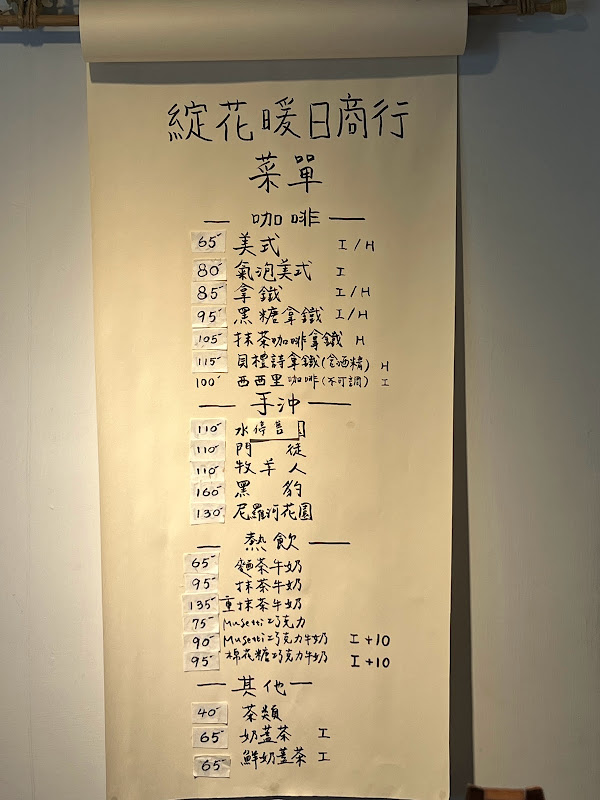 綻花暖日商行
菜單
咖啡
65 美式 I/H
80 氣泡美式 I
85 拿鐵 I/H
95 黑糖拿鐵 I/H
105 抹茶咖啡拿鐵 H
115 貝禮詩拿鐵(含酒精) H
100 西西里咖啡(不可調) I
手沖
110 水 停售
110 門徒
110 牧羊人
160 黑豹
130 尼羅河花園
熱飲
65 麵茶牛奶
95 抹茶牛奶
135 重抹茶牛奶
75 Musetti巧克力
90 Musetti巧克力牛奶 I+10
95 棉花糖巧克力牛奶 I+10
其他
40 茶類
65 奶蓋茶 I
65 鮮奶蓋茶 I